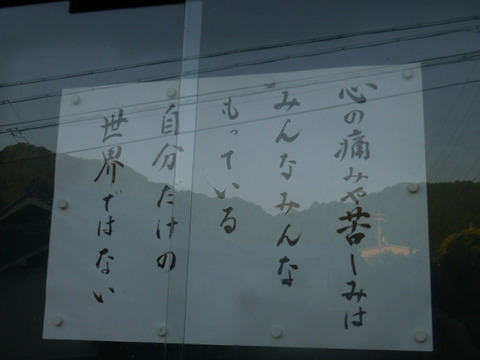 心の痛みや苦しみは
みんなみんな
もっている
自分だけの
世界ではない